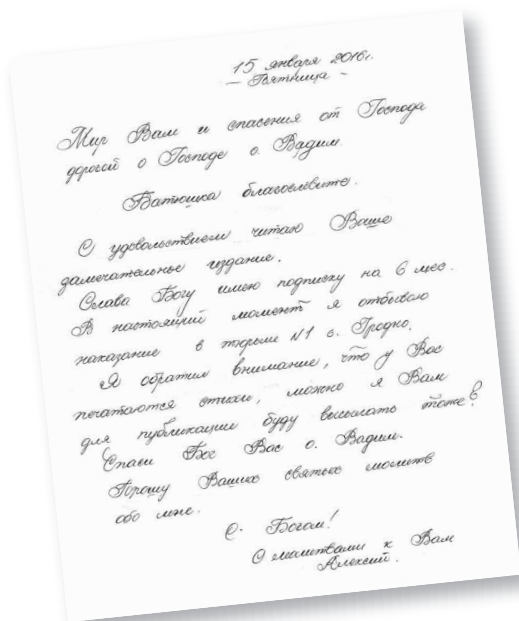 15 января 2016г.
– Пятница –
Мир Вам и спасения от Господа
дорогой о Господе о. Вадим.
Батюшка благословите.
С удовольствием читаю Ваше
замечательное издание.
Слава Богу имею подписку на 6 мес.
В настоящий момент я отбываю
наказание в тюрьме №1 г. Гродно.
Я обратил внимание, что у Вас
печатаются стихи, можно я Вам
для публикации буду высылать тоже?
Спаси Бог Вас о. Вадим.
Прошу Ваших святых молитв
обо мне.
С Богом!
С молитвами к Вам
Алексий.